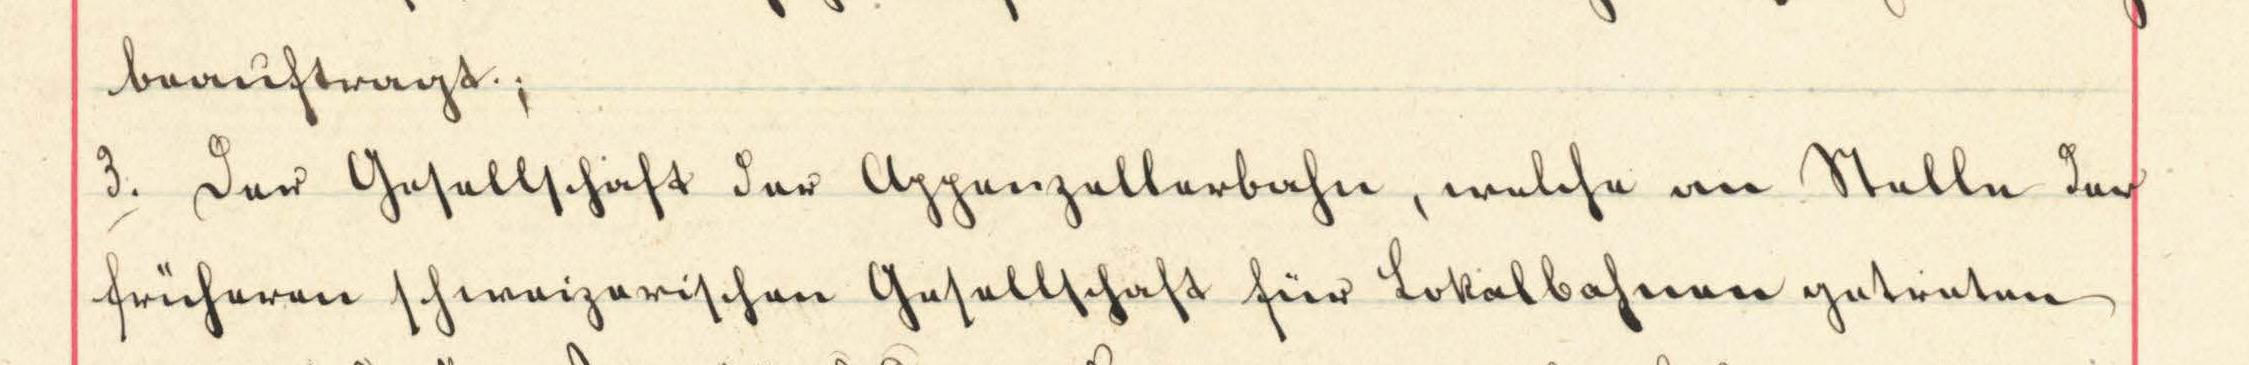 beauftragt.;
3. Der Gesellschaft der Appenzellerbahn, welche an Stelle der
früheren schweizerischen Gesellschaft für Lokalbahnen getreten